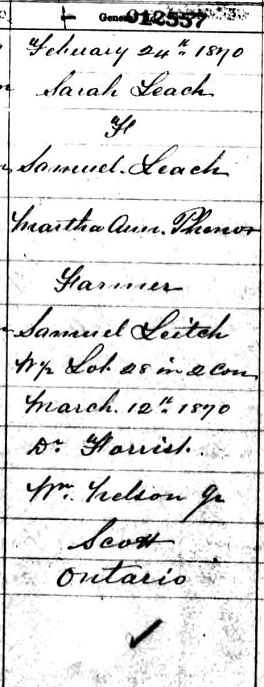 012557
February 24th 1870
Sarah Leach
F
Samuel Leach
Martha Ann
Farmer
Samuel Leitch
W½ Lot 28 in 2 Con
March. 12th 1870
Dr. Forrist.
Wm. Nelson Jr
Scott
Ontario